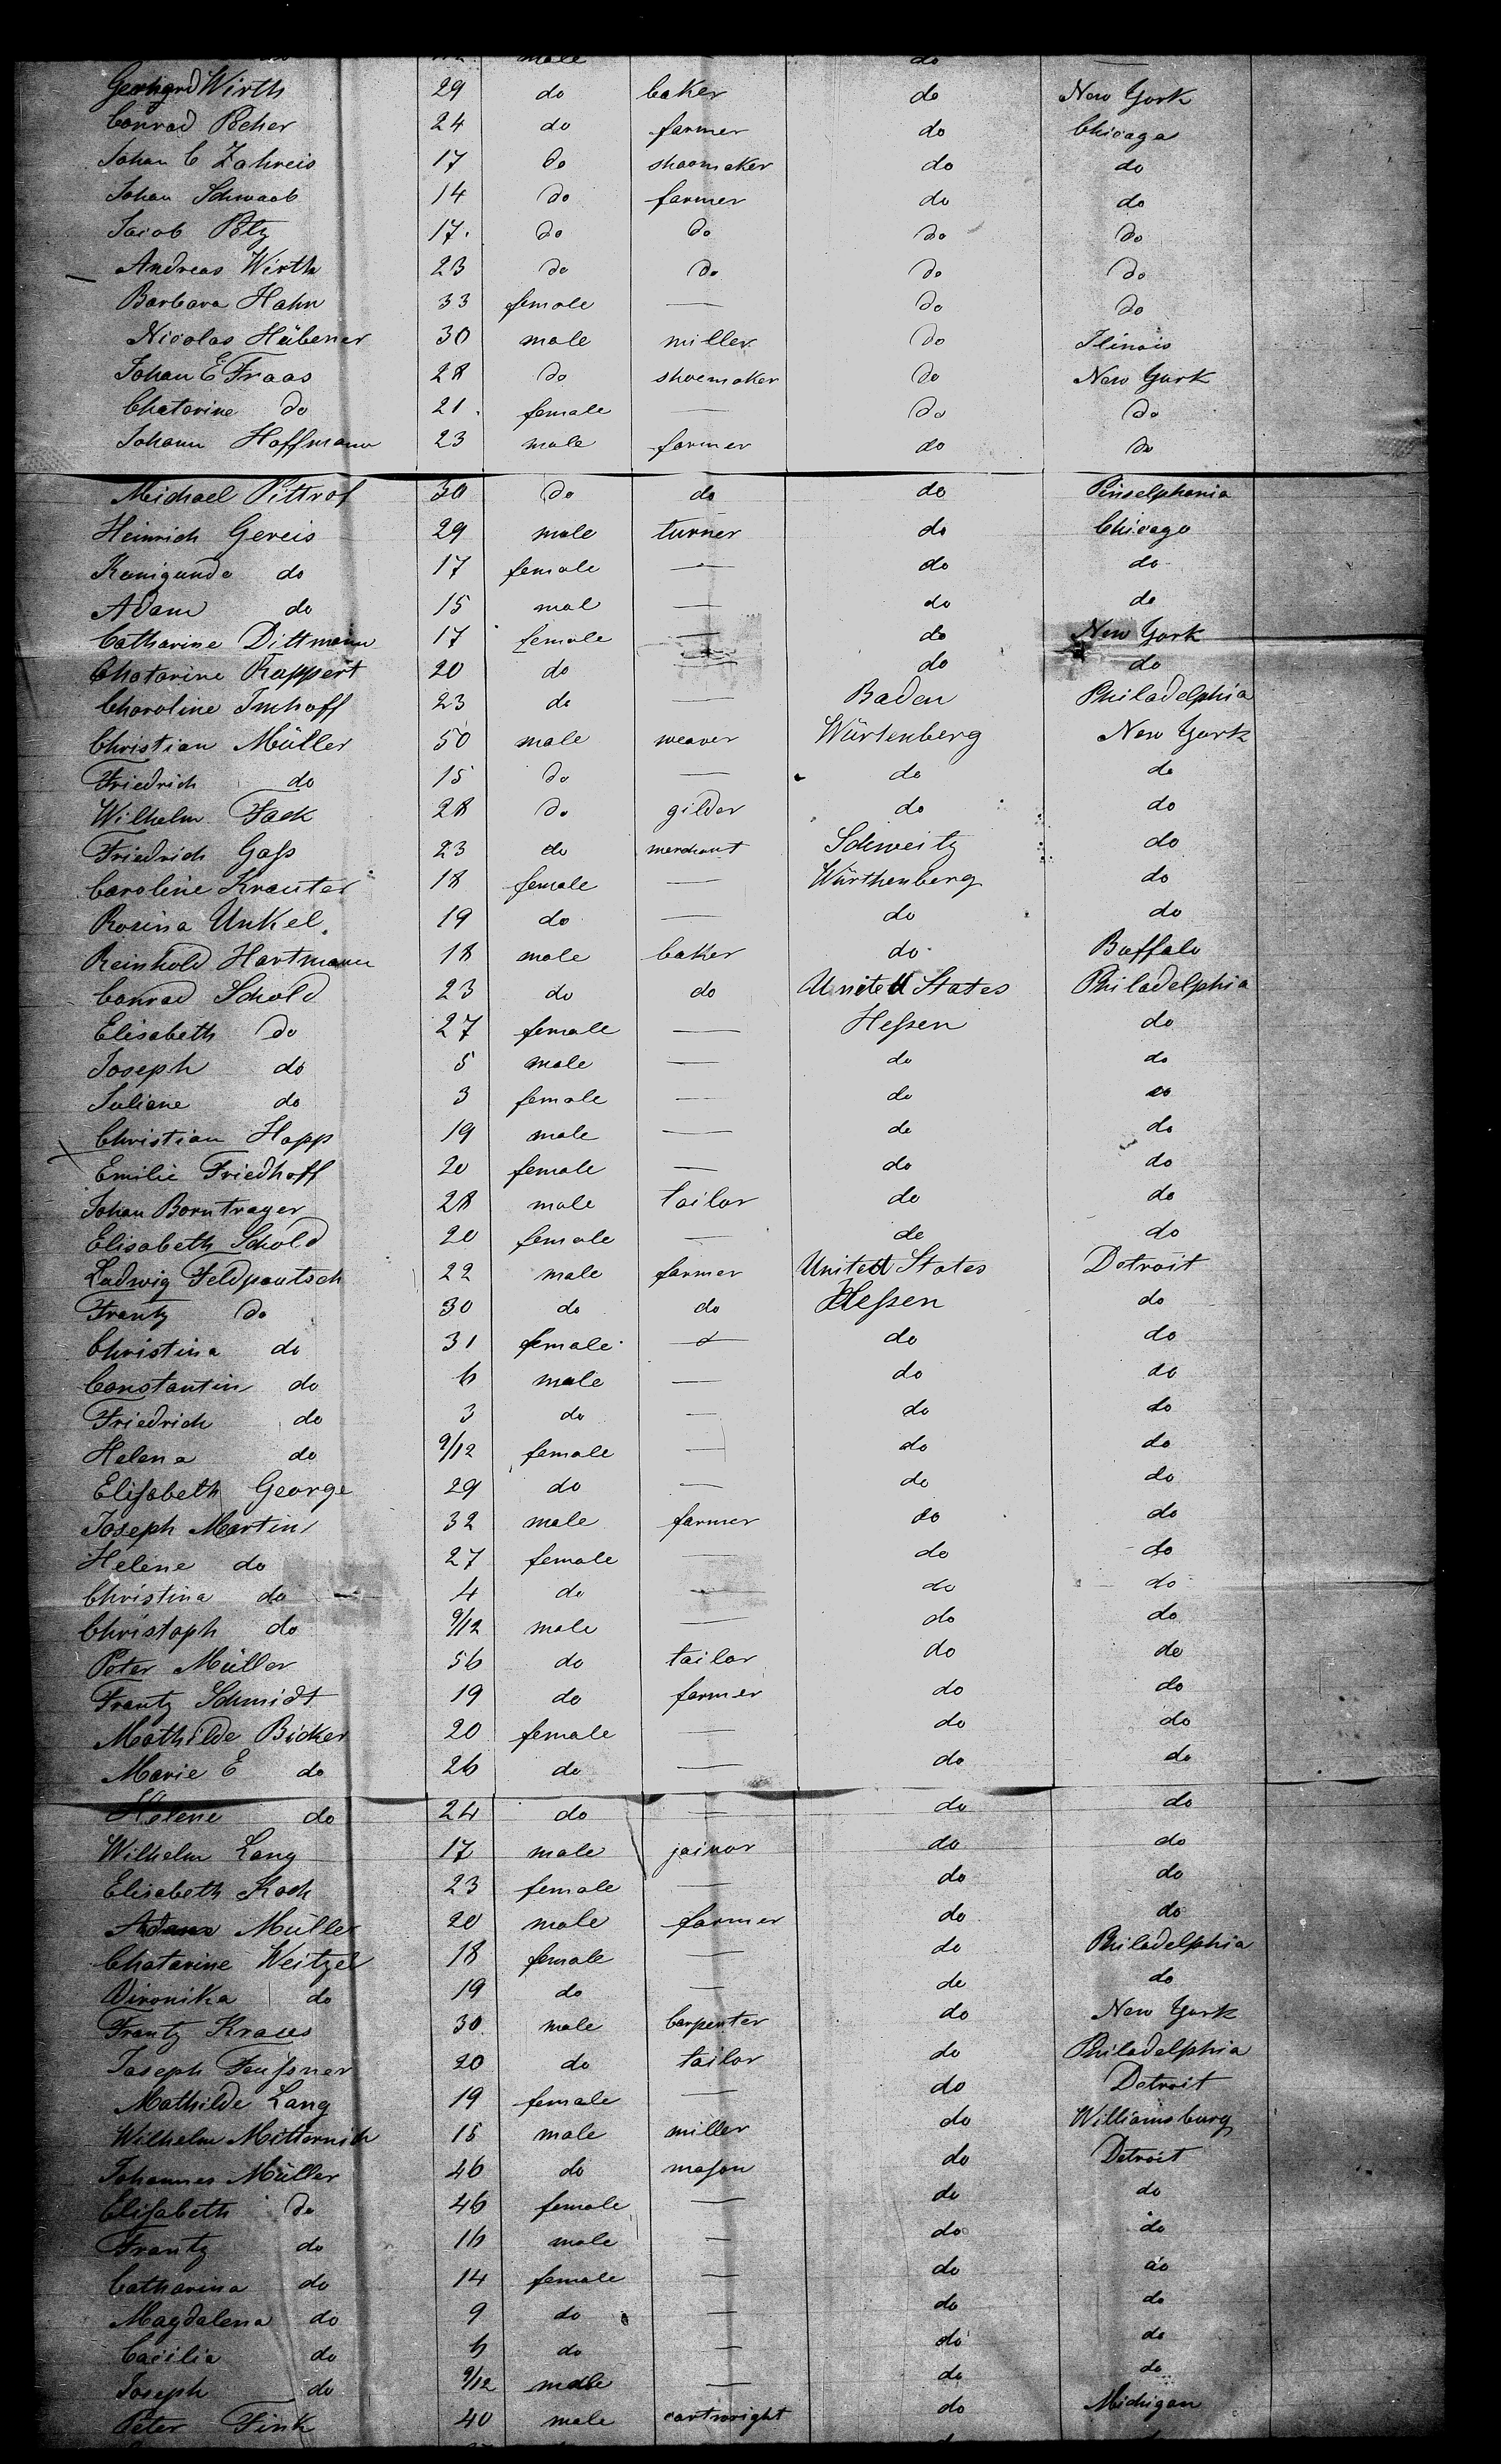 male do
Gerhard Wirth 29 do baker do New York
Conrad Reher 24 do farmer do Chicago
Johan C Zahreis 17 do shoomaker do do
Johan Schwaab 14 do farmer do do
Jacob Pelz 17. do do do do
Andreas Wirth 23 do do do do
Barbara Hahn 33 female — do do
Nicolas Hübener 30 male miller do Ilinois
Johan E Fraas 28 do shoemaker do New York
Chatarine do 21. female — do do
Johann Hoffmann 23 male farmer do do
Michael Pittrof 30 do do do Pinselphania
Heinrich Gereis 29 male turner do Chicago
Kunigunde do 17 female — do do
Adam do 15 mal — do do
Catharine Dittmann 17 female — do New York
Chatarine Ruppert 20 do — do do
Charoline Imhoff 23 do — Baden Philadelphia
Christian Müller 50 male weaver Würtenberg New York
Friedrich do 15 do — do do
Wilhelm Fack 28 do gilder do do
Friedrich Gass 23 do merchant Schweitz do
Caroline Krauter 18 female — Würthenberg do
Rosina Unkel. 19 do — do do
Reinhold Hartmann 18 male baker do Buffalo
Conrad Schold 23 do do United States Philadelphia
Elisabeth do 27 female — Hessen do
Joseph do 5 male — do do
Juliane do 3 female — do do
Christian Happ 19 male — do do
Emilie Friedhoff 20 female — do do
Johan Borntrager 28 male tailor do do
Elisabeth Schold 20 female — do do
Ludwig Feldpautsch 22 male farmer United States Detroit
Frantz do 30 do do Hessen do
Christina do 31 female — do do
Constantin do 6 male — do do
Friedrich do 3 do — do do
Helena do 9/12 female — do do
Elisabeth George 29 do — do do
Joseph Martin 32 male farmer do do
Helene do 27 female — do do
Christina do 4 do — do do
Christoph do 9/12 male — do do
Peter Müller 56 do tailor do do
Frantz Schmidt 19 do farmer do do
Mathilde Bicker 20 female — do do
Marie E do 26 do — do do
Helene do 24 do — do do
Wilhelm Lang 17 male joinor do do
Elisabeth Koch 23 female — do do
Adam Müller 20 male farmer do do
Chatarine Weitzel 18 female — do Philadelphia
Vironika do 19 do — do do
Frantz Kraus 30 male Carpenter do New York
Joseph Feussner 20 do tailor do Philadelphia
Mathilde Lang 19 female — do Detroit
Wilhelm Mitternich 15 male miller do Williamsburg
Johannes Müller 46 do mason do Detroit
Elisabeth do 46 female — do do
Frantz do 16 male — do do
Catharina do 14 female — do do
Magdalena do 9 do — do do
Cacilia do 6 do — do do
Joseph do 9/12 male — do do
Peter Fink 40 male cartwright do Michigan